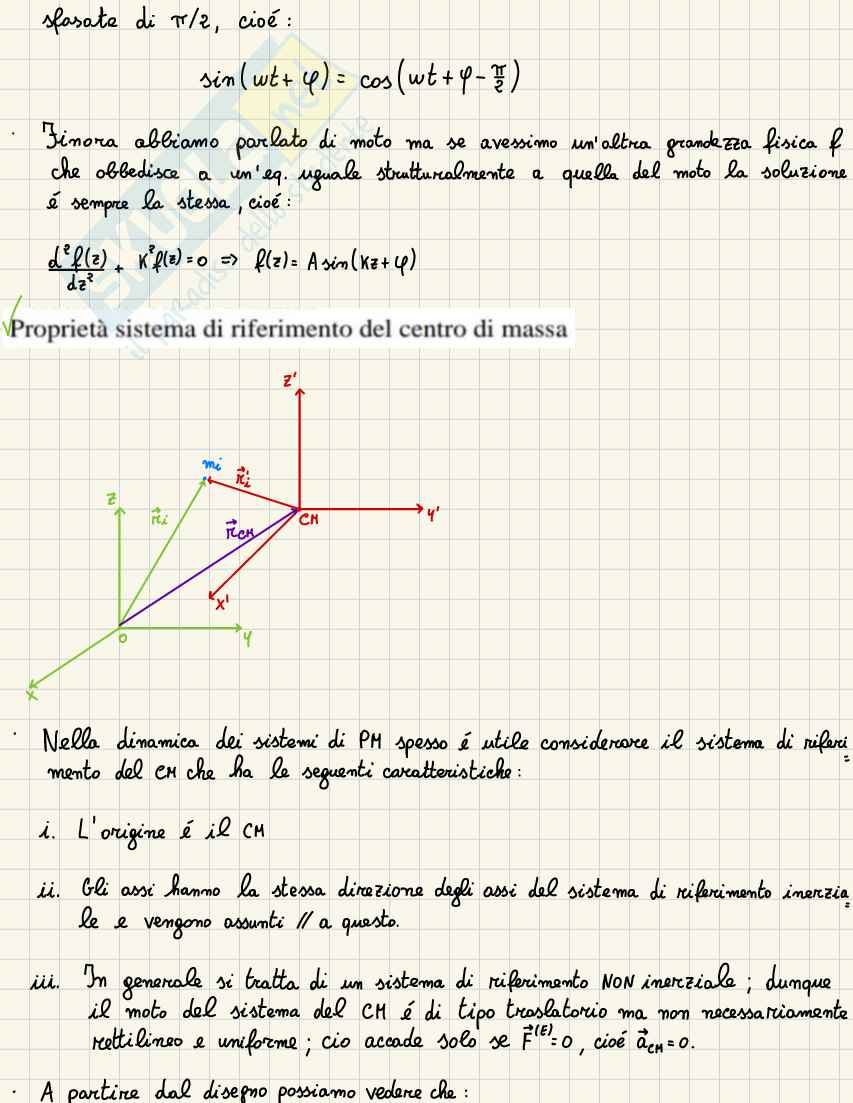 sfasate di π/2, cioé:
sin(wt + φ) = cos(wt + φ - π/2)
· Finora abbiamo parlato di moto ma se avessimo un'altra grandezza fisica f
che obbedisce a un'eq. uguale strutturalmente a quella del moto la soluzione
é sempre la stessa, cioé:
d²f(z)/dz² + K²f(z) = 0 ⇒ f(z) = A sin(Kz + φ)
SKUOLA.net
il paradiso dello studente
√ Proprietà sistema di riferimento del centro di massa
z'
mi
r⃗i'
z
r⃗i
r⃗CM
CM
y'
x'
O
y
x
· Nella dinamica dei sistemi di PM spesso é utile considerare il sistema di riferi=
mento del CM che ha le seguenti caratteristiche:
i. L'origine é il CM
ii. Gli assi hanno la stessa direzione degli assi del sistema di riferimento inerzia=
le e vengono assunti // a questo.
iii. In generale si tratta di un sistema di riferimento NON inerziale; dunque
il moto del sistema del CM é di tipo traslatorio ma non necessariamente
rettilineo e uniforme; cio accade solo se F⃗^(E) = 0, cioé a⃗CM = 0.
· A partire dal disegno possiamo vedere che: